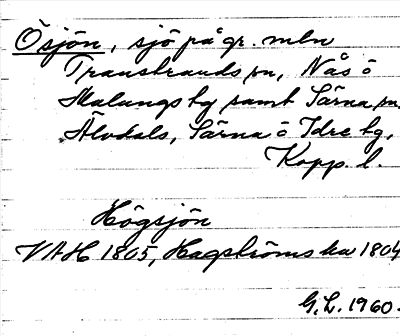 Ösjön, sjö på gr. mln
Transtrands sn, Nås o
Malungs tg samt Särna sn,
Älvdals, Särna o Idre tg,
Kopp. l.
Högsjön
VAH 1805, Hagströms ka 1804
G.L. 1960.